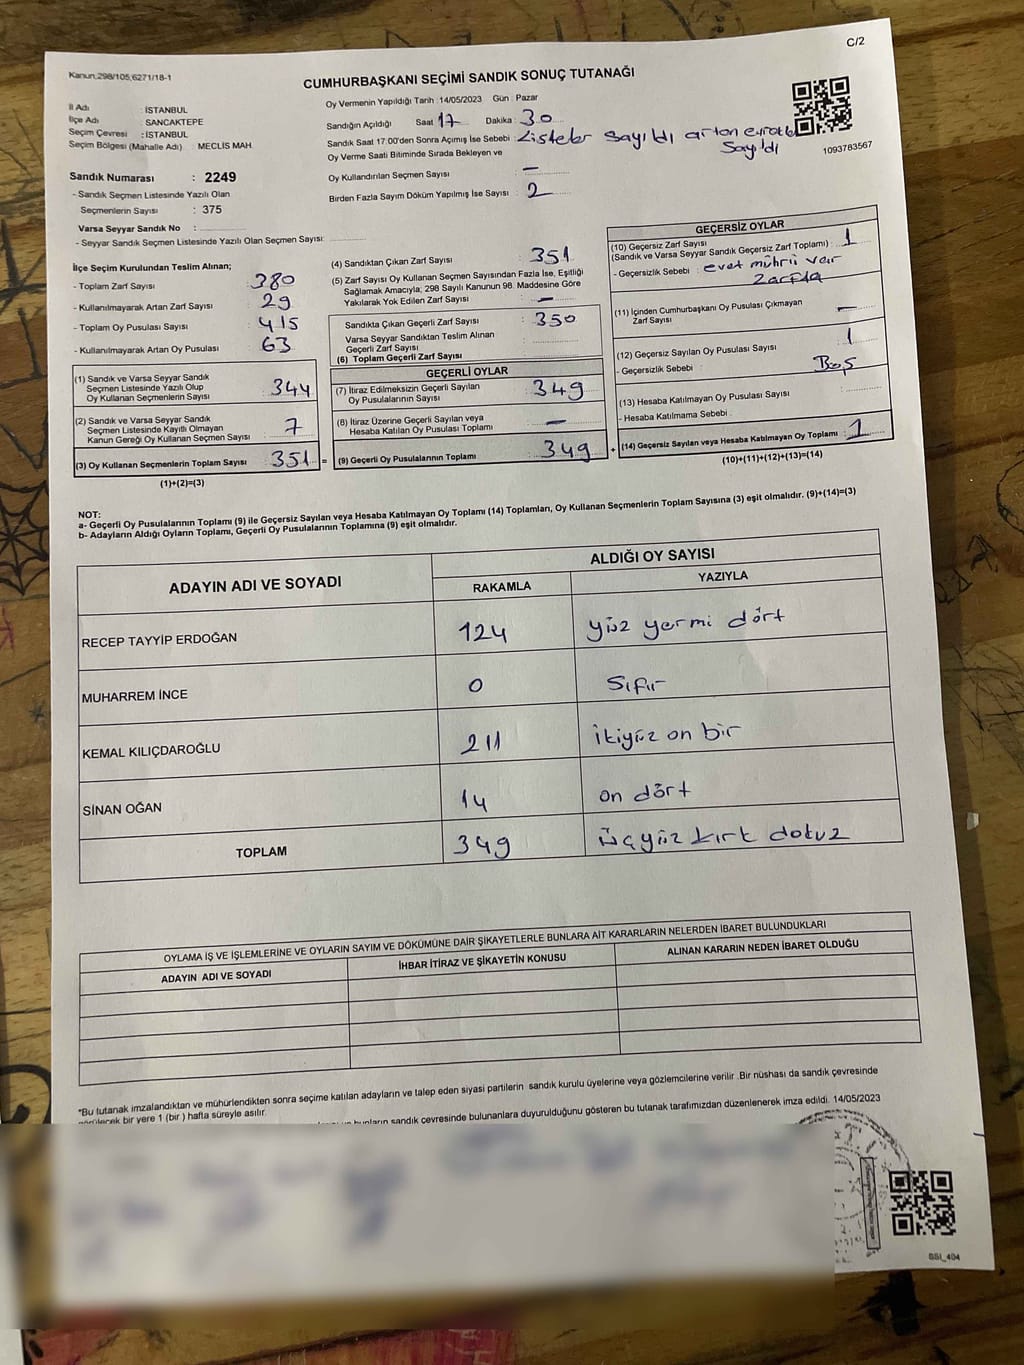 C/2
Kanun;298/105,6271/18-1
CUMHURBAŞKANI SEÇİMİ SANDIK SONUÇ TUTANAĞI
İl Adı : İSTANBUL
İlçe Adı : SANCAKTEPE
Seçim Çevresi : İSTANBUL
Seçim Bölgesi (Mahalle Adı) : MECLİS MAH.
Oy Vermenin Yapıldığı Tarih :14/05/2023 Gün : Pazar
Sandığın Açıldığı Saat 17 Dakika : 30
Sandık Saat 17:00'den Sonra Açımış İse Sebebi : Listeler sayıldı artan evrotlar
Sayıldı
1093783567
Oy Verme Saati Bitiminde Sırada Bekleyen ve
Oy Kullandırılan Seçmen Sayısı : —
Birden Fazla Sayım Döküm Yapılmış İse Sayısı : 2
Sandık Numarası : 2249
- Sandık Seçmen Listesinde Yazılı Olan
Seçmenlerin Sayısı : 375
Varsa Seyyar Sandık No :
- Seyyar Sandık Seçmen Listesinde Yazılı Olan Seçmen Sayısı:
İlçe Seçim Kurulundan Teslim Alınan;
- Toplam Zarf Sayısı : 380
- Kullanılmayarak Artan Zarf Sayısı : 29
- Toplam Oy Pusulası Sayısı : 415
- Kullanılmayarak Artan Oy Pusulası : 63
(1) Sandık ve Varsa Seyyar Sandık
Seçmen Listesinde Yazılı Olup
Oy Kullanan Seçmenlerin Sayısı : 344
(2) Sandık ve Varsa Seyyar Sandık
Seçmen Listesinde Kayıtlı Olmayan
Kanun Gereği Oy Kullanan Seçmen Sayısı : 7
(3) Oy Kullanan Seçmenlerin Toplam Sayısı : 351 =
(1)+(2)=(3)
(4) Sandıktan Çıkan Zarf Sayısı : 351
(5) Zarf Sayısı Oy Kullanan Seçmen Sayısından Fazla İse, Eşitliği
Sağlamak Amacıyla; 298 Sayılı Kanunun 98. Maddesine Göre
Yakılarak Yok Edilen Zarf Sayısı : —
Sandıkta Çıkan Geçerli Zarf Sayısı : 350
Varsa Seyyar Sandıktan Teslim Alınan
Geçerli Zarf Sayısı :
(6) Toplam Geçerli Zarf Sayısı :
GEÇERLİ OYLAR
(7) İtiraz Edilmeksizin Geçerli Sayılan
Oy Pusulalarının Sayısı : 349
(8) İtiraz Üzerine Geçerli Sayılan veya
Hesaba Katılan Oy Pusulası Toplamı : —
(9) Geçerli Oy Pusulalarının Toplamı : 349 +
GEÇERSİZ OYLAR
(10) Geçersiz Zarf Sayısı
(Sandık ve Varsa Seyyar Sandık Geçersiz Zarf Toplamı) : 1
- Geçersizlik Sebebi : evet mührü var
zarfda
(11) İçinden Cumhurbaşkanı Oy Pusulası Çıkmayan
Zarf Sayısı : —
(12) Geçersiz Sayılan Oy Pusulası Sayısı : 1
- Geçersizlik Sebebi : Boş
(13) Hesaba Katılmayan Oy Pusulası Sayısı :
- Hesaba Katılmama Sebebi :
(14) Geçersiz Sayılan veya Hesaba Katılmayan Oy Toplamı : 1
(10)+(11)+(12)+(13)=(14)
NOT:
a- Geçerli Oy Pusulalarının Toplamı (9) ile Geçersiz Sayılan veya Hesaba Katılmayan Oy Toplamı (14) Toplamları, Oy Kullanan Seçmenlerin Toplam Sayısına (3) eşit olmalıdır. (9)+(14)=(3)
b- Adayların Aldığı Oyların Toplamı, Geçerli Oy Pusulalarının Toplamına (9) eşit olmalıdır.
ADAYIN ADI VE SOYADI ALDIĞI OY SAYISI
RAKAMLA YAZIYLA
RECEP TAYYİP ERDOĞAN 124 yüz yermi dört
MUHARREM İNCE 0 Sıfır
KEMAL KILIÇDAROĞLU 211 ikiyüz on bir
SİNAN OĞAN 14 on dört
TOPLAM 349 üçyüz kırk dokuz
OYLAMA İŞ VE İŞLEMLERİNE VE OYLARIN SAYIM VE DÖKÜMÜNE DAİR ŞİKAYETLERLE BUNLARA AİT KARARLARIN NELERDEN İBARET BULUNDUKLARI
ADAYIN ADI VE SOYADI İHBAR İTİRAZ VE ŞİKAYETİN KONUSU ALINAN KARARIN NEDEN İBARET OLDUĞU
*Bu tutanak imzalandıktan ve mühürlendikten sonra seçime katılan adayların ve talep eden siyasi partilerin sandık kurulu üyelerine veya gözlemcilerine verilir .Bir nüshası da sandık çevresinde
görülecek bir yere 1 (bir ) hafta süreyle asılır.
bunların sandık çevresinde bulunanlara duyurulduğunu gösteren bu tutanak tarafımızdan düzenlenerek imza edildi. 14/05/2023
SSI_404